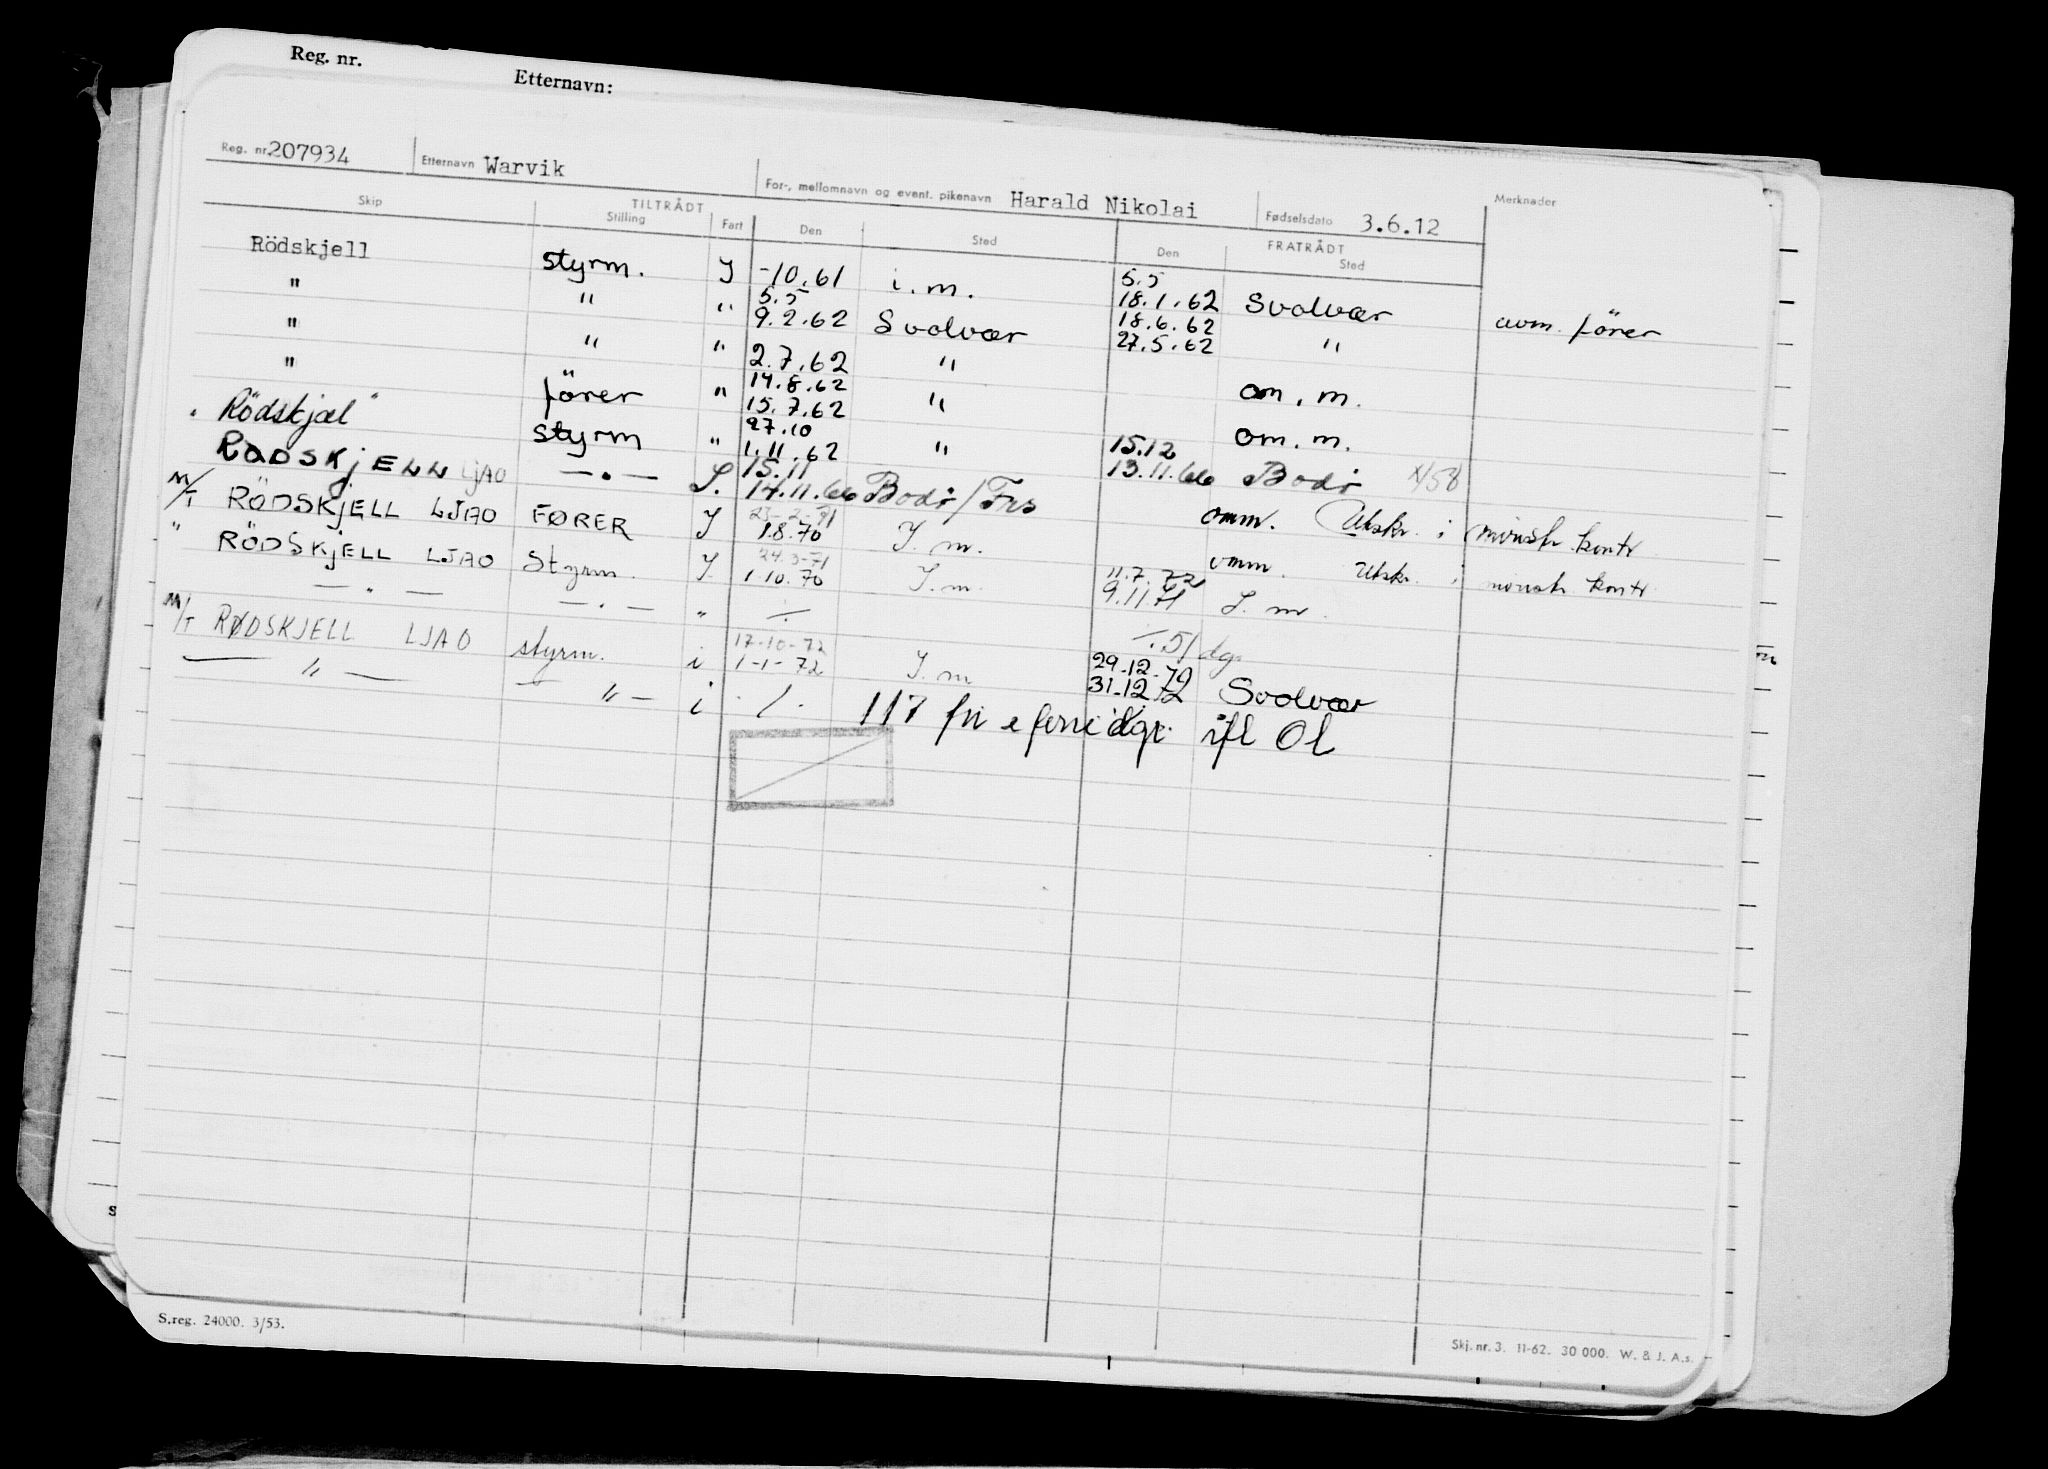 Reg. nr.
Etternavn:
Reg. nr. 207934 Etternavn Warvik For-, mellomnavn og event. pikenavn Harald Nikolai Fødselsdato 3.6.12 Merknader
TILTRÅDT FRATRÅDT
Skip Stilling Fart Den Sted Den Sted
Rödskjell styrm. J -10.61 i.m. 5.5 18.1.62 Svolvær
" " " 5.5 9.2.62 Svolvær 18.6.62 27.5.62 " avm. förer
" " " 2.7.62 " om.m.
" förer " 14.8.62 15.7.62 " om.m.
Rödskjæl" styrm " 27.10 1.11.62 " 15.12 13.11.66 Bodö x/58
RÖDSKJELL LJAO —"— S. 15.11 14.11.66 Bodö/Frs omm. Utskr. i mönstr. kontr
M/T RÖDSKJELL LJAO FØRER J 23-2-71 1.8.70 J.m. omm. Utskr. i mönstr kontr
" RÖDSKJELL LJAO Styrm. J. 24.3-71 1.10.70 J.m. 11.7.72 9.11.71 J.m.
—"— —"— " ÷ ÷ 51 dg.
M/T RØDSKJELL LJAO styrm. i 17-10-72 1-1-72 J.m 29.12.72 31.12.72 Svolvær
—"— —"— i ./. 117 fri e feriedgr. ifl Ol
S.reg. 24000. 3/53.
Skj. nr. 3. 11-62. 30 000. W. & J. A.s.